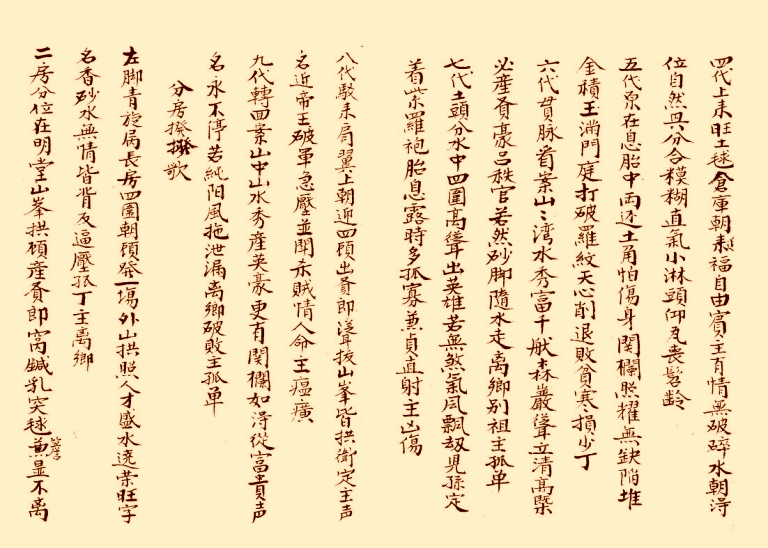 四代上来旺土毬倉庫朝来福自由賓主有情無破碎水朝淂
位自然與分合糢糊直氣小淋頭仰瓦丧髫齡
五代原在息胎中両边土角怕傷身関欄照耀無缺陷堆
金積玉満門庭打破羅紋天心削退敗貧寒損少丁
六代貫脉看案山山湾水秀富千般森嚴聳立清高槩
必産貴豪品秩官若然砂脚隨水走離鄉别祖主孤单
七代土頭分水中四圍高聳出英雄若無煞氣風飄刼児孫定
着紫羅袍胎息露時多孤寡兼貞直射主凶傷
八代駁来肩翼上朝迎四顧出貴郎聳拔山峯皆拱衛定主声
名近帝王破軍急壓並開禾賊情人命主瘟癀
九代轉四案山中山水秀産英豪更有関欄如淂從富貴声
名永不停若純阳風拖泄漏離鄉破敗主孤单
分房撥撥歌
左脚青旋局長房四圍朝顧發一塲外山拱照人才盛水遶荣旺字
名香砂水無情皆背反逼壓孤丁主离鄉
二房分位在明堂山峯拱顧産貴郎窩鉗乳突毬兼显不离